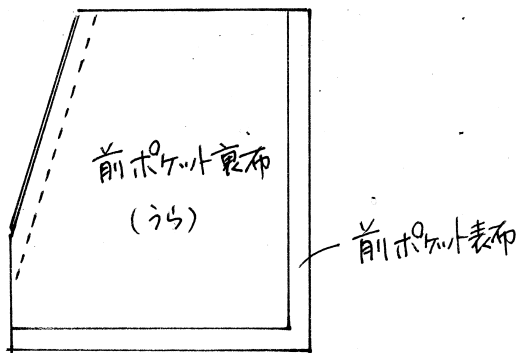 前ポケット裏布
(うら)
前ポケット表布